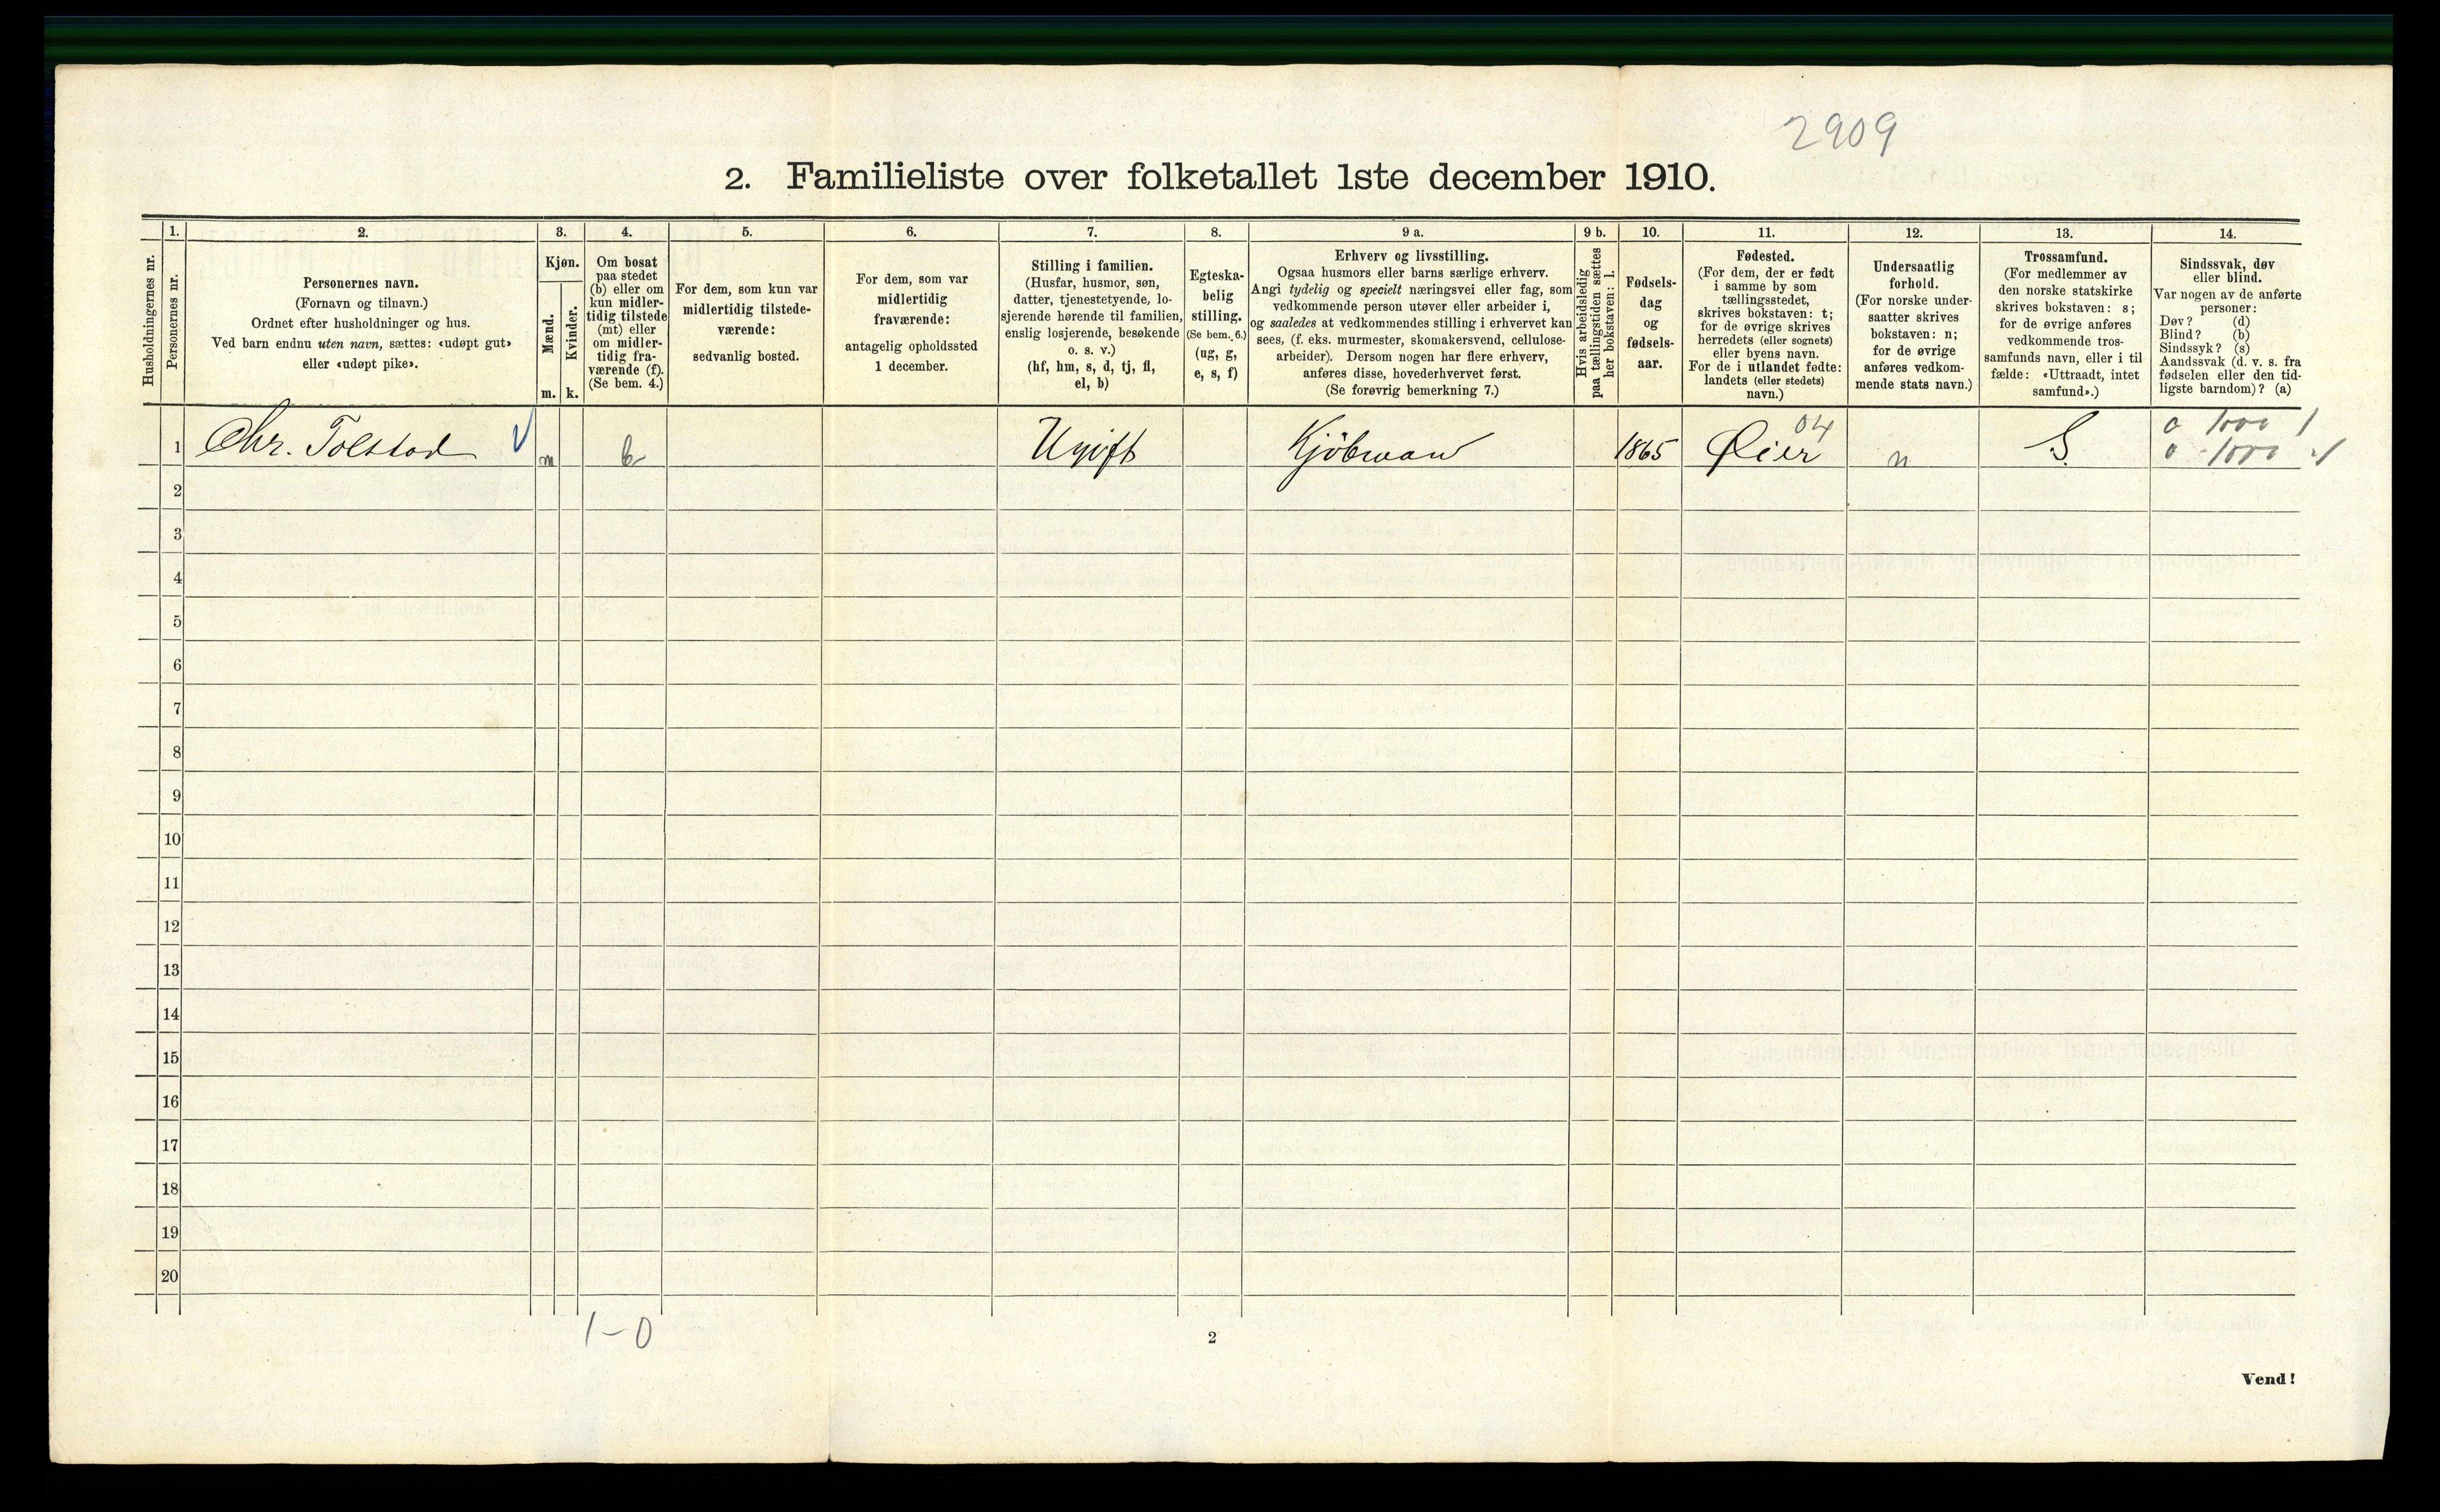 2909
2. Familieliste over folketallet 1ste december 1910.
Husholdningernes nr.
1.
Personernes nr.
2.
Personernes navn.
(Fornavn og tilnavn.)
Ordnet efter husholdninger og hus.
Ved barn endnu uten navn, sættes: «udøpt gut»
eller «udøpt pike».
3.
Kjøn.
Mænd.
Kvinder.
m.
k.
4.
Om bosat
paa stedet
(b) eller om
kun midler-
tidig tilstede
(mt) eller
om midler-
tidig fra-
værende (f).
(Se bem. 4.)
5.
For dem, som kun var
midlertidig tilstede-
værende:
sedvanlig bosted.
6.
For dem, som var
midlertidig
fraværende:
antagelig opholdssted
1 december.
7.
Stilling i familien.
(Husfar, husmor, søn,
datter, tjenestetyende, lo-
sjerende hørende til familien,
enslig losjerende, besøkende
o. s. v.)
(hf, hm, s, d, tj, fl,
el, b)
8.
Egteska-
belig
stilling.
(Se bem. 6.)
(ug, g,
e, s, f)
9 a.
Erhverv og livsstilling.
Ogsaa husmors eller barns særlige erhverv.
Angi tydelig og specielt næringsvei eller fag, som
vedkommende person utøver eller arbeider i,
og saaledes at vedkommendes stilling i erhvervet kan
sees, (f. eks. murmester, skomakersvend, cellulose-
arbeider). Dersom nogen har flere erhverv,
anføres disse, hovederhvervet først.
(Se forøvrig bemerkning 7.)
9 b.
Hvis arbeidsledig
paa tællingstiden sættes
her bokstaven: l.
10.
Fødsels-
dag
og
fødsels-
aar.
11.
Fødested.
(For dem, der er født
i samme by som
tællingsstedet,
skrives bokstaven: t;
for de øvrige skrives
herredets (eller sognets)
eller byens navn.
For de i utlandet fødte:
landets (eller stedets)
navn.)
12.
Undersaatlig
forhold.
(For norske under-
saatter skrives
bokstaven: n;
for de øvrige
anføres vedkom-
mende stats navn.)
13.
Trossamfund.
(For medlemmer av
den norske statskirke
skrives bokstaven: s;
for de øvrige anføres
vedkommende tros-
samfunds navn, eller i til
fælde: «Uttraadt, intet
samfund».)
14.
Sindssvak, døv
eller blind.
Var nogen av de anførte
personer:
Døv? (d)
Blind? (b)
Sindssyk? (s)
Aandssvak (d. v. s. fra
fødselen eller den tid-
ligste barndom)? (a)
1 Chr. Tolstad m b Ugift Kjöbman 1865 Øier 04 n S. 0 1000 1
0 1000
2
3
4
5
6
7
8
9
10
11
12
13
14
15
16
17
18
19
20
1-0
2
Vend!